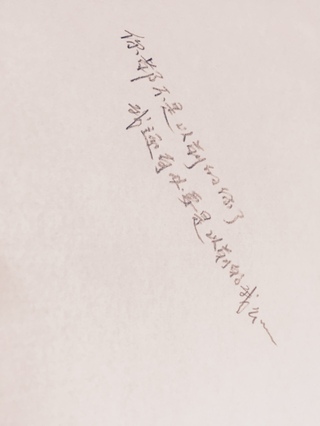 你都不是以前的你了
我还自以为是以前的我么